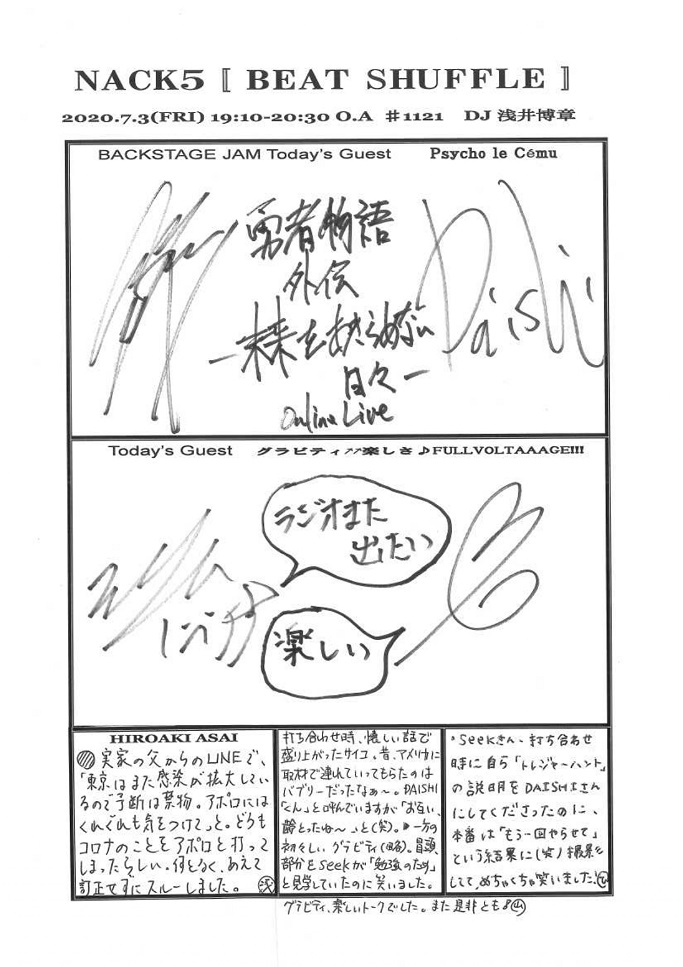 NACK5 〚 BEAT SHUFFLE 〛
2020.7.3(FRI) 19:10-20:30 O.A ♯1121 DJ 浅井博章
BACKSTAGE JAM Today's Guest Psycho le Cému
勇者物語
外伝
Daishi
日々ー
Online Live
Today's Guest グラビティ⤴⤴楽しき♪FULLVOLTAAAGE!!!
ラジオまた
出たい
楽しい
HIROAKI ASAI
実家の父からのLINEで、
「東京はまた感染が拡大してい
るので予断は禁物。アポロには
くれぐれも気をつけて」と。どうも
コロナのことをアポロと打って
しまったらしい。何となく、あえて
訂正せずにスルーしました。浅
打ち合わせ時、懐しい話で
盛り上がったサイコ。昔、アメリカに
取材で連れていってもらったのは
バブリーだったなぁ〜。DAISHI
「くん」と呼んでいますが「お互い、
齢とったね〜」と(笑)。一方の
初々しい、グラビティ(略)。冒頭
部分をSeekが「勉強のため」
と見学していたのに笑いました。
グラビティ、楽しいトークでした。また是非とも
・Seekさん、打ち合わせ
時に自ら「トレジャーハント」
の説明をDAISHIさん
にしてくださったのに、
本番は「もう一回やらせて」
という結果に(笑)
して、めちゃくちゃ笑いました!